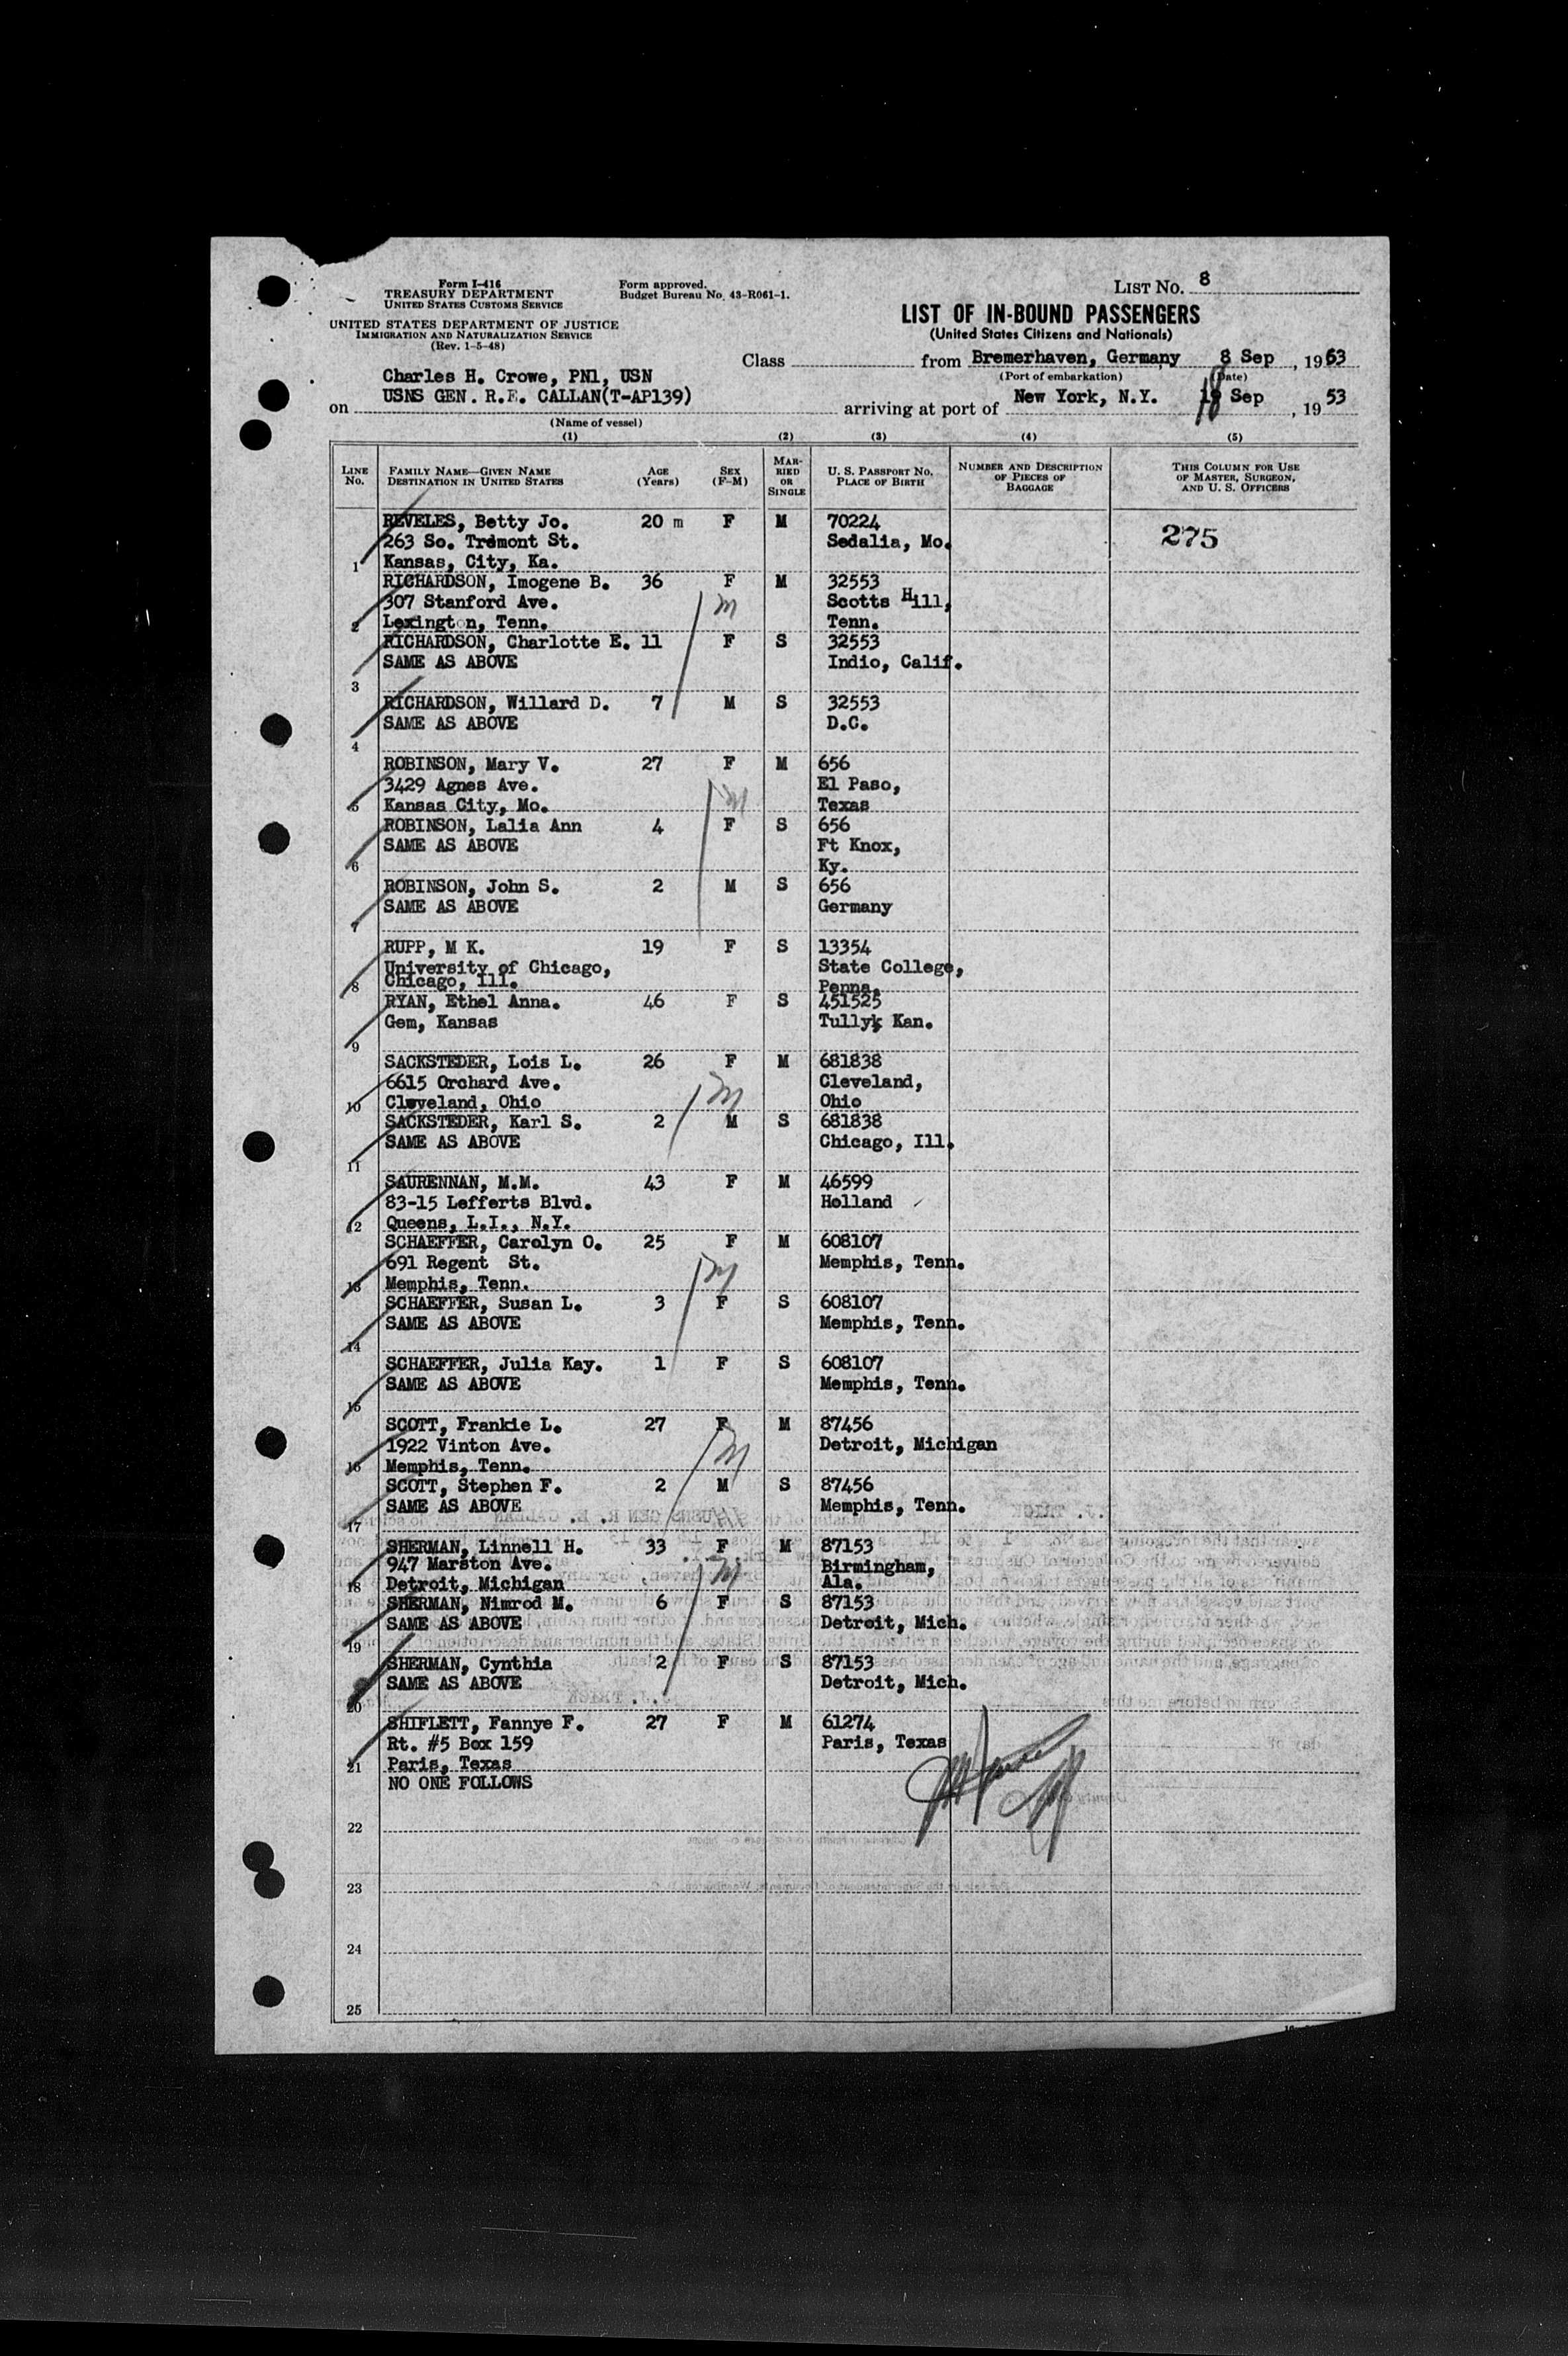 Form I-416
TREASURY DEPARTMENT
UNITED STATES CUSTOMS SERVICE
Form approved.
Budget Bureau No. 43-R061-1.
LIST No. 8
UNITED STATES DEPARTMENT OF JUSTICE
IMMIGRATION AND NATURALIZATION SERVICE
(Rev. 1-5-48)
LIST OF IN-BOUND PASSENGERS
(United States Citizens and Nationals)
Class from Bremerhaven, Germany, 8 Sep, 1953
(Port of embarkation) (Date)
Charles H. Crowe, PN1, USN
on USNS GEN. R.E. CALLAN(T-AP139) arriving at port of New York, N.Y. 18 Sep, 1953
(Name of vessel)
(1) (2) (3) (4) (5)
LINE No. FAMILY NAME—GIVEN NAME DESTINATION IN UNITED STATES AGE (Years) SEX (F-M) MARRIED OR SINGLE U. S. PASSPORT NO. PLACE OF BIRTH NUMBER AND DESCRIPTION OF PIECES OF BAGGAGE THIS COLUMN FOR USE OF MASTER, SURGEON, AND U. S. OFFICERS
REVELES, Betty Jo. 20 m F M 70224 275
263 So. Tremont St. Sedalia, Mo.
1 Kansas, City, Ka.
RICHARDSON, Imogene B. 36 F M 32553
307 Stanford Ave. m Scotts Hill,
2 Lexington, Tenn. Tenn.
RICHARDSON, Charlotte E. 11 F S 32553
SAME AS ABOVE Indio, Calif.
3
RICHARDSON, Willard D. 7 M S 32553
SAME AS ABOVE D.C.
4
ROBINSON, Mary V. 27 F M 656
3429 Agnes Ave. El Paso,
5 Kansas City, Mo. m Texas
ROBINSON, Lalia Ann 4 F S 656
SAME AS ABOVE Ft Knox,
6 Ky.
ROBINSON, John S. 2 M S 656
SAME AS ABOVE Germany
7
RUPP, M K. 19 F S 13354
University of Chicago, State College,
8 Chicago, Ill. Penna.
RYAN, Ethel Anna. 46 F S 451525
Gem, Kansas Tully, Kan.
9
SACKSTEDER, Lois L. 26 F M 681838
6615 Orchard Ave. Cleveland,
10 Cleveland, Ohio m Ohio
SACKSTEDER, Karl S. 2 M S 681838
SAME AS ABOVE Chicago, Ill.
11
SAURENNAN, M.M. 43 F M 46599
83-15 Lefferts Blvd. Holland
12 Queens, L.I., N.Y.
SCHAEFFER, Carolyn O. 25 F M 608107
691 Regent St. Memphis, Tenn.
13 Memphis, Tenn. m
SCHAEFFER, Susan L. 3 F S 608107
SAME AS ABOVE Memphis, Tenn.
14
SCHAEFFER, Julia Kay. 1 F S 608107
SAME AS ABOVE Memphis, Tenn.
15
SCOTT, Frankie L. 27 F M 87456
1922 Vinton Ave. Detroit, Michigan
16 Memphis, Tenn. m
SCOTT, Stephen F. 2 M S 87456
SAME AS ABOVE Memphis, Tenn.
17
SHERMAN, Linnell H. 33 F M 87153
947 Marston Ave. Birmingham,
18 Detroit, Michigan m Ala.
SHERMAN, Nimrod M. 6 F S 87153
SAME AS ABOVE Detroit, Mich.
19
SHERMAN, Cynthia 2 F S 87153
SAME AS ABOVE Detroit, Mich.
20
SHIFLETT, Fannye F. 27 F M 61274
Rt. #5 Box 159 Paris, Texas
21 Paris, Texas
NO ONE FOLLOWS
22
23
24
25